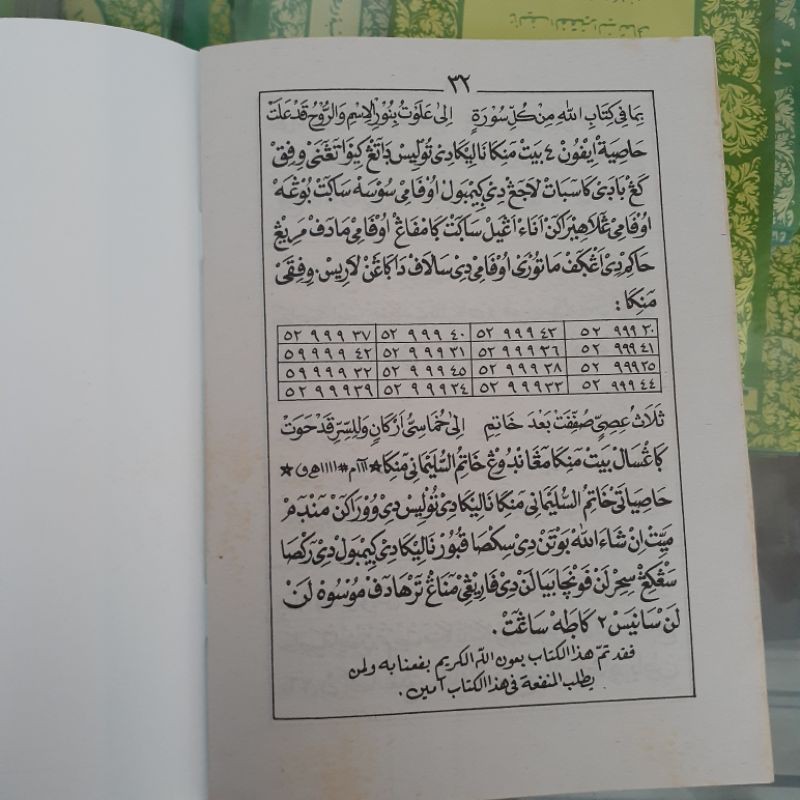 ٣٢
بِمَا فِي كِتَابِ اللهِ مِنْ كُلِّ سُوْرَةٍ إِلَى عَلَوْتُ بِنُوْرِ الْاِسْمِ وَالرُّوْحُ قَدْ عَلَتْ
حاصية ايفون ٤ بيت منكا ناليكا دي توليس داتڠ كيوا تڠنى وفق
كڠ بادى كاسبات لاجڠ دي كيمبول اوفامى سوسه ساكت بوڠه
اوفامى ڠلاهيراكن اناء اڠيل ساكت كامفاڠ اوفامى مادف مريڠ
حاكم دي اڠكف ماتورى اوفامى دي سالاف داكاڠن لاريس. وفقى
مَنِكَا :
٥٢ ٩٩٩ ٣٧ ٥٢ ٩٩٩ ٤٠ ٥٢ ٩٩٩ ٤٣ ٥٢ ٩٩٩ ٣٠
٥٩ ٩٩٩ ٤٢ ٥٢ ٩٩٩ ٣١ ٥٢ ٩٩٩ ٣٦ ٥٢ ٩٩٩ ٤١
٥٩ ٩٩٩ ٣٢ ٥٢ ٩٩٩ ٤٥ ٥٢ ٩٩٩ ٣٨ ٥٢ ٩٩٩ ٣٥
٥٢ ٩٩٩ ٣٩ ٥٢ ٩٩٩ ٣٤ ٥٢ ٩٩٩ ٣٣ ٥٢ ٩٩٩ ٤٤
ثَلَاثُ عِصِيٍّ صُفِّفَتْ بَعْدَ خَاتِمٍ إِلَى خُمَاسِيِّ أَرْكَانٍ وَلِلسِّرِّ قَدْ حَوَتْ
كاڠسال بيت منكا مڠاندوڠ خاتم السليمانى منكا
حاصياتى خاتم السليمانى منكا ناليكا دي توليس دي ووراكن مندم
ميت ان شاء الله بوتن دي سكصا قبور ناليكا دي كيمبول دي ركصا
سڠكڠ سحر لن فونچا بيا لن دي فاريڠى مناڠ ترهادف موسوه لن
لن سانيس ٢ كاطه ساڠت .
فقد تمّ هذا الكتاب بعون الله الكريم بفعنا به ولمن
يطلب المنفعة في هذا الكتاب آمين .